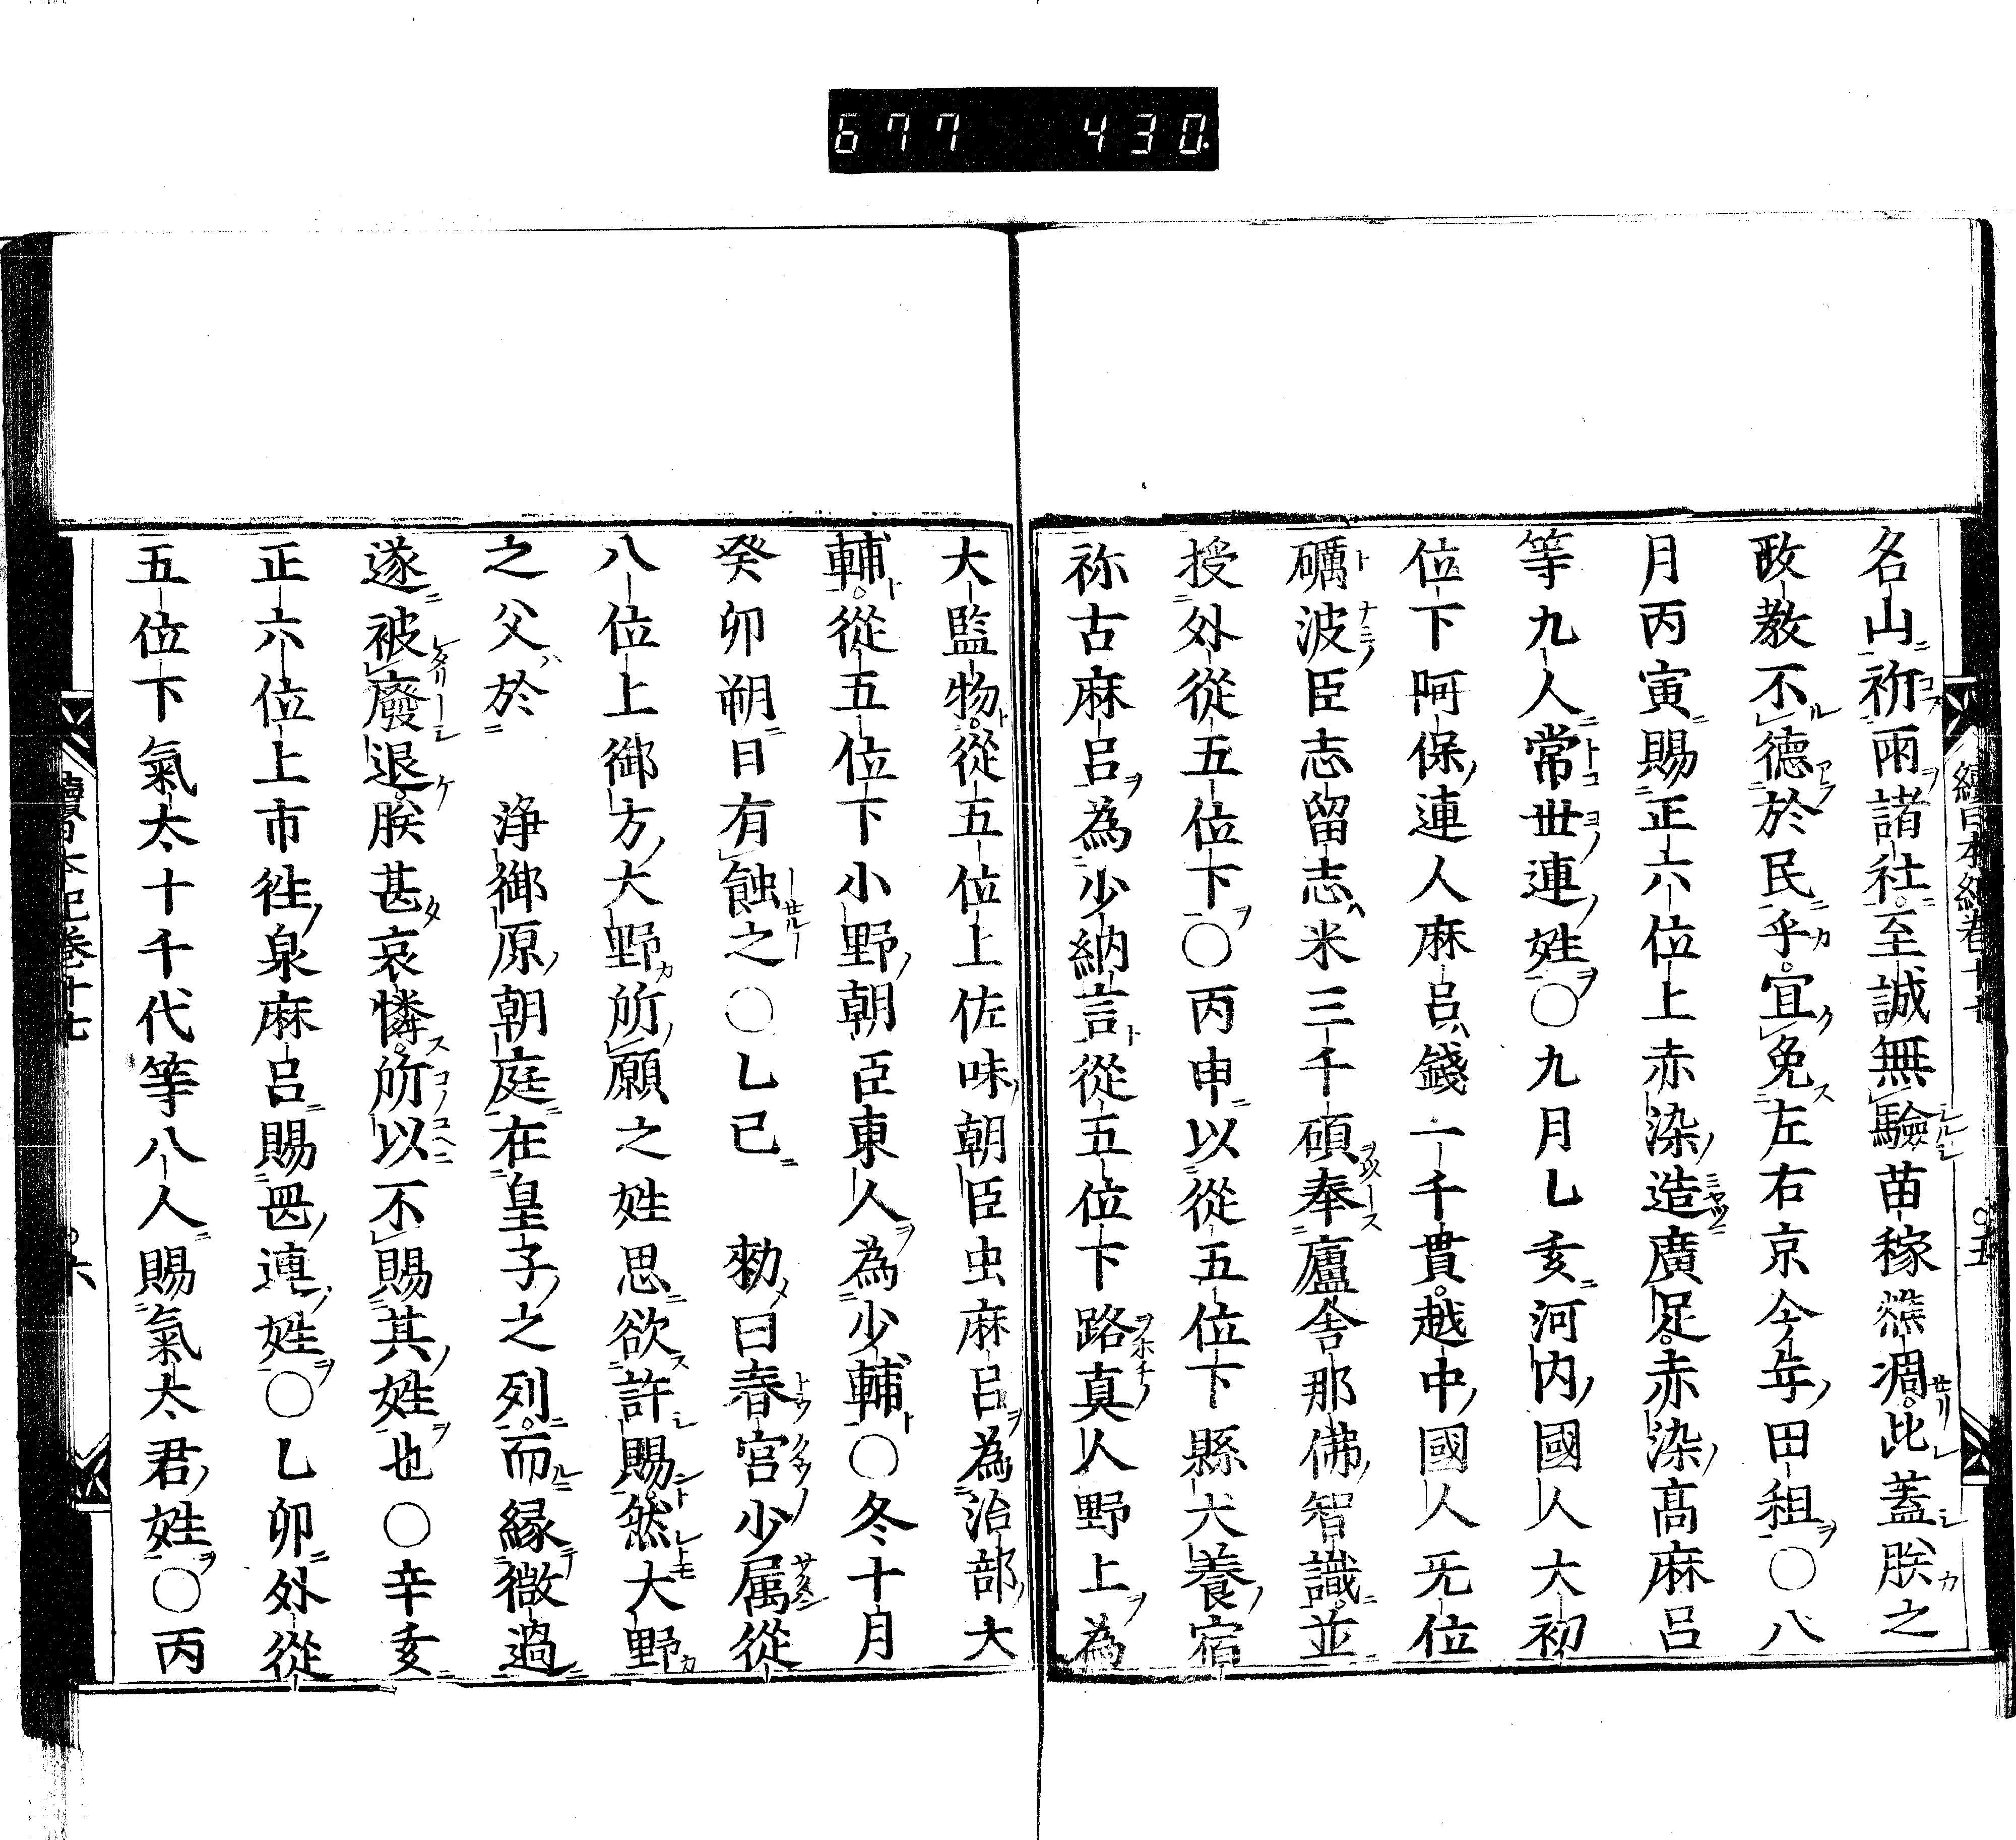 677 430
續日本紀卷十七 ○五
名山祈雨諸社至誠無驗苗稼燋凋此蓋朕之
政教不德於民乎宜免左右京今年田租○八
月丙寅賜正六位上赤染造廣足赤染高麻呂
等九人常世連姓○九月乙亥河内國人大初
位下呵保連人麻呂錢一千貫越中國人旡位
礪波臣志留志米三千碩奉廬舎那佛智識並
授外從五位下○丙申以從五位下縣犬養宿
祢古麻呂為少納言從五位下路真人野上為
大監物從五位上佐味朝臣虫麻呂為治部大
輔從五位下小野朝臣東人為少輔○冬十月
癸卯朔日有蝕之○乙巳 勑曰春宮少属從
八位上御方大野所願之姓思欲許賜然大野
之父於 浄御原朝庭在皇子之列而縁微過
遂被廢退朕甚哀憐所以不賜其姓也○辛亥
正六位上市徃泉麻呂賜罡連姓○乙卯外從
五位下氣太十千代等八人賜氣太君姓○丙
續日本紀卷十七 ○六